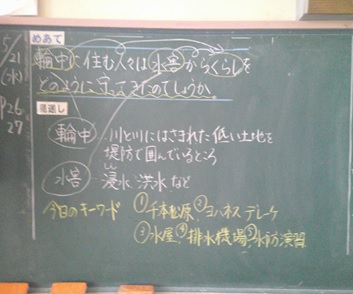 5/21
(水)
P26
27
めあて
輪中に住む人々は水害からくらしを
どのように守ってきたのでしょうか。
見通し
輪中 川と川にはさまれた低い土地を
堤防で囲んでいるところ
水害 浸水 洪水 など
しん
今日のキーワード ①千本松原 ②ヨハネス デレーケ
③水屋 ④排水機場 ⑤水防演習